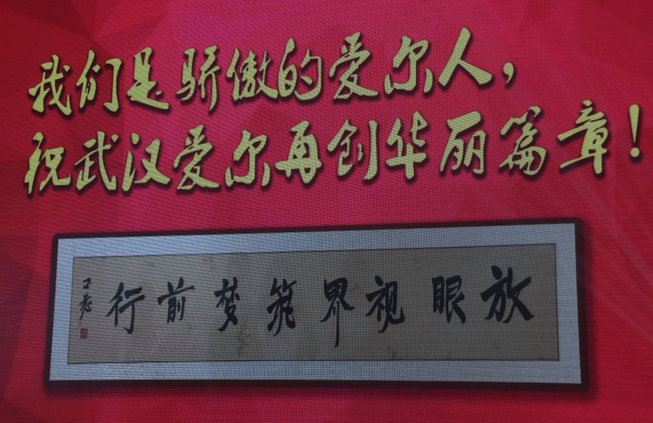 我们是骄傲的爱尔人，
祝武汉爱尔再创华丽篇章！
放眼视界筑梦前行